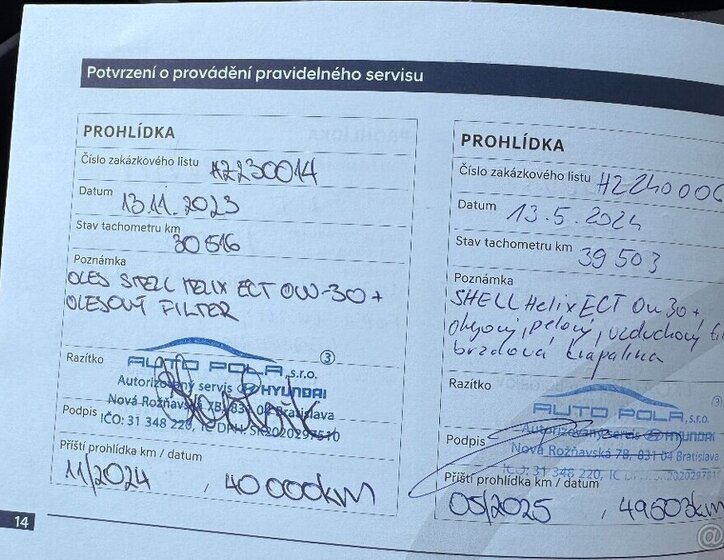 Potvrzení o provádění pravidelného servisu
PROHLÍDKA
Číslo zakázkového listu HZ230014
Datum 13.11.2023
Stav tachometru km 30 516
Poznámka
OLEJ SHELL HELIX ECT 0W-30 +
OLEJOVÝ FILTER
Razítko
AUTO POLA, s.r.o.
3
Autorizovaný servis HYUNDAI
Nová Rožňavská 78, 831 04 Bratislava
Podpis
IČO: 31 348 220, IČ DPH: SK2020297510
Příští prohlídka km / datum
11/2024 , 40 000km
PROHLÍDKA
Číslo zakázkového listu HZ24000
Datum 13.5.2024
Stav tachometru km 39 503
Poznámka
SHELL Helix ECT 0w30 +
olejový, peľový, vzduchový
brzdová kvapalina
Razítko
3
AUTO POLA, s.r.o.
Autorizovaný servis HYUNDAI
Podpis
Nová Rožňavská 78, 831 04 Bratislava
IČO: 31 348 220, IČ
Příští prohlídka km / datum
05/2025 , 49503km
14